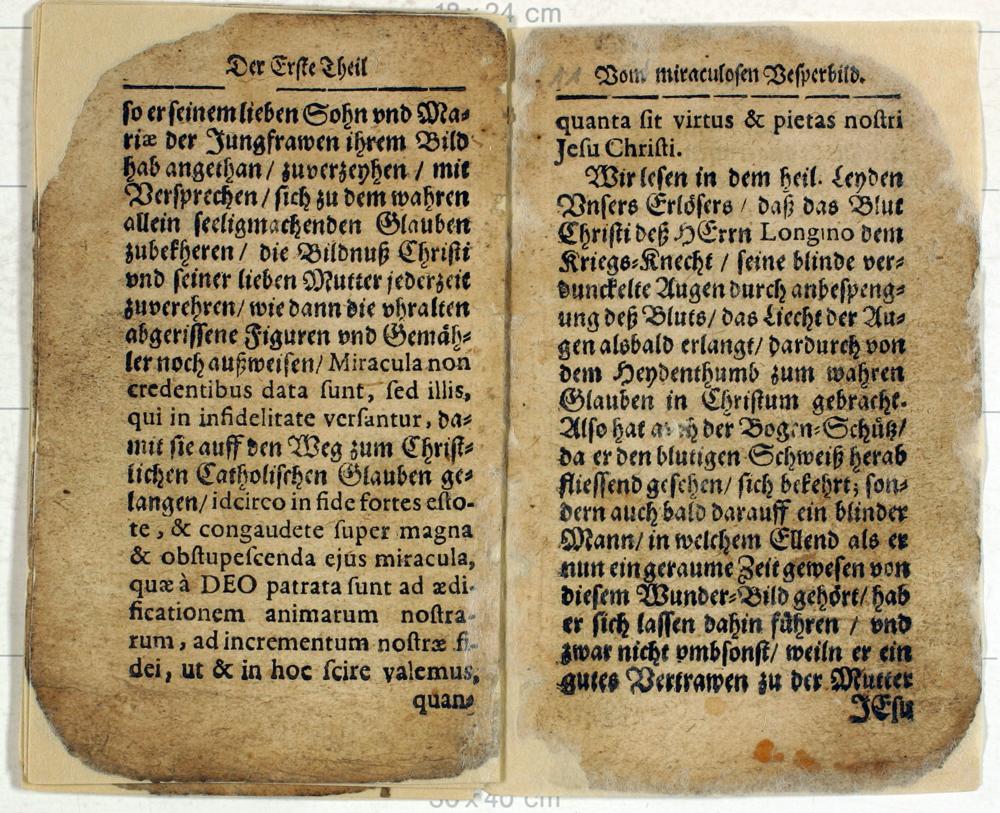 18 x 24 cm
Der Erste Theil
so er seinem lieben Sohn vnd Ma-
riæ der Jungfrawen ihrem Bild
hab angethan / zuverzeyhen / mit
Versprechen / sich zu dem wahren
allein seeligmachenden Glauben
zubekheren / die Bildnuß Christi
vnd seiner lieben Mutter jederzeit
zuverehren / wie dann die vhralten
abgerissene Figuren vnd Gemäh-
ler noch außweisen / Miracula non
credentibus data ſunt, ſed illis,
qui in infidelitate verſantur, da-
mit sie auff den Weg zum Christ-
lichen Catholischen Glauben ge-
langen / idcirco in fide fortes eſto-
te, & congaudete ſuper magna
& obſtupeſcenda ejus miracula,
quæ à DEO patrata ſunt ad ædi-
ficationem animarum noſtra-
rum, ad incrementum noſtræ fi-
dei, ut & in hoc ſcire valemus,
quan-
11 Vom miraculosen Vesperbild.
quanta ſit virtus & pietas noſtri
Jeſu Chriſti.
Wir lesen in dem heil. Leyden
Vnsers Erlösers / daß das Blut
Christi deß HErrn Longino dem
Kriegs-Knecht / seine blinde ver-
dunckelte Augen durch anbespeng-
ung deß Bluts / das Liecht der Au-
gen alsbald erlangt / dardurch von
dem Heydenthumb zum wahren
Glauben in Christum gebracht.
Also hat auch der Bogen-Schütz /
da er den blutigen Schweiß herab
fliessend gesehen / sich bekehrt; son-
dern auch bald darauff ein blinder
Mann / in welchem Ellend als er
nun ein geraume Zeit gewesen von
diesem Wunder-Bild gehört / hab
er sich lassen dahin führen / vnd
zwar nicht vmbsonst / weiln er ein
gutes Vertrawen zu der Mutter
JEsu
30 x 40 cm